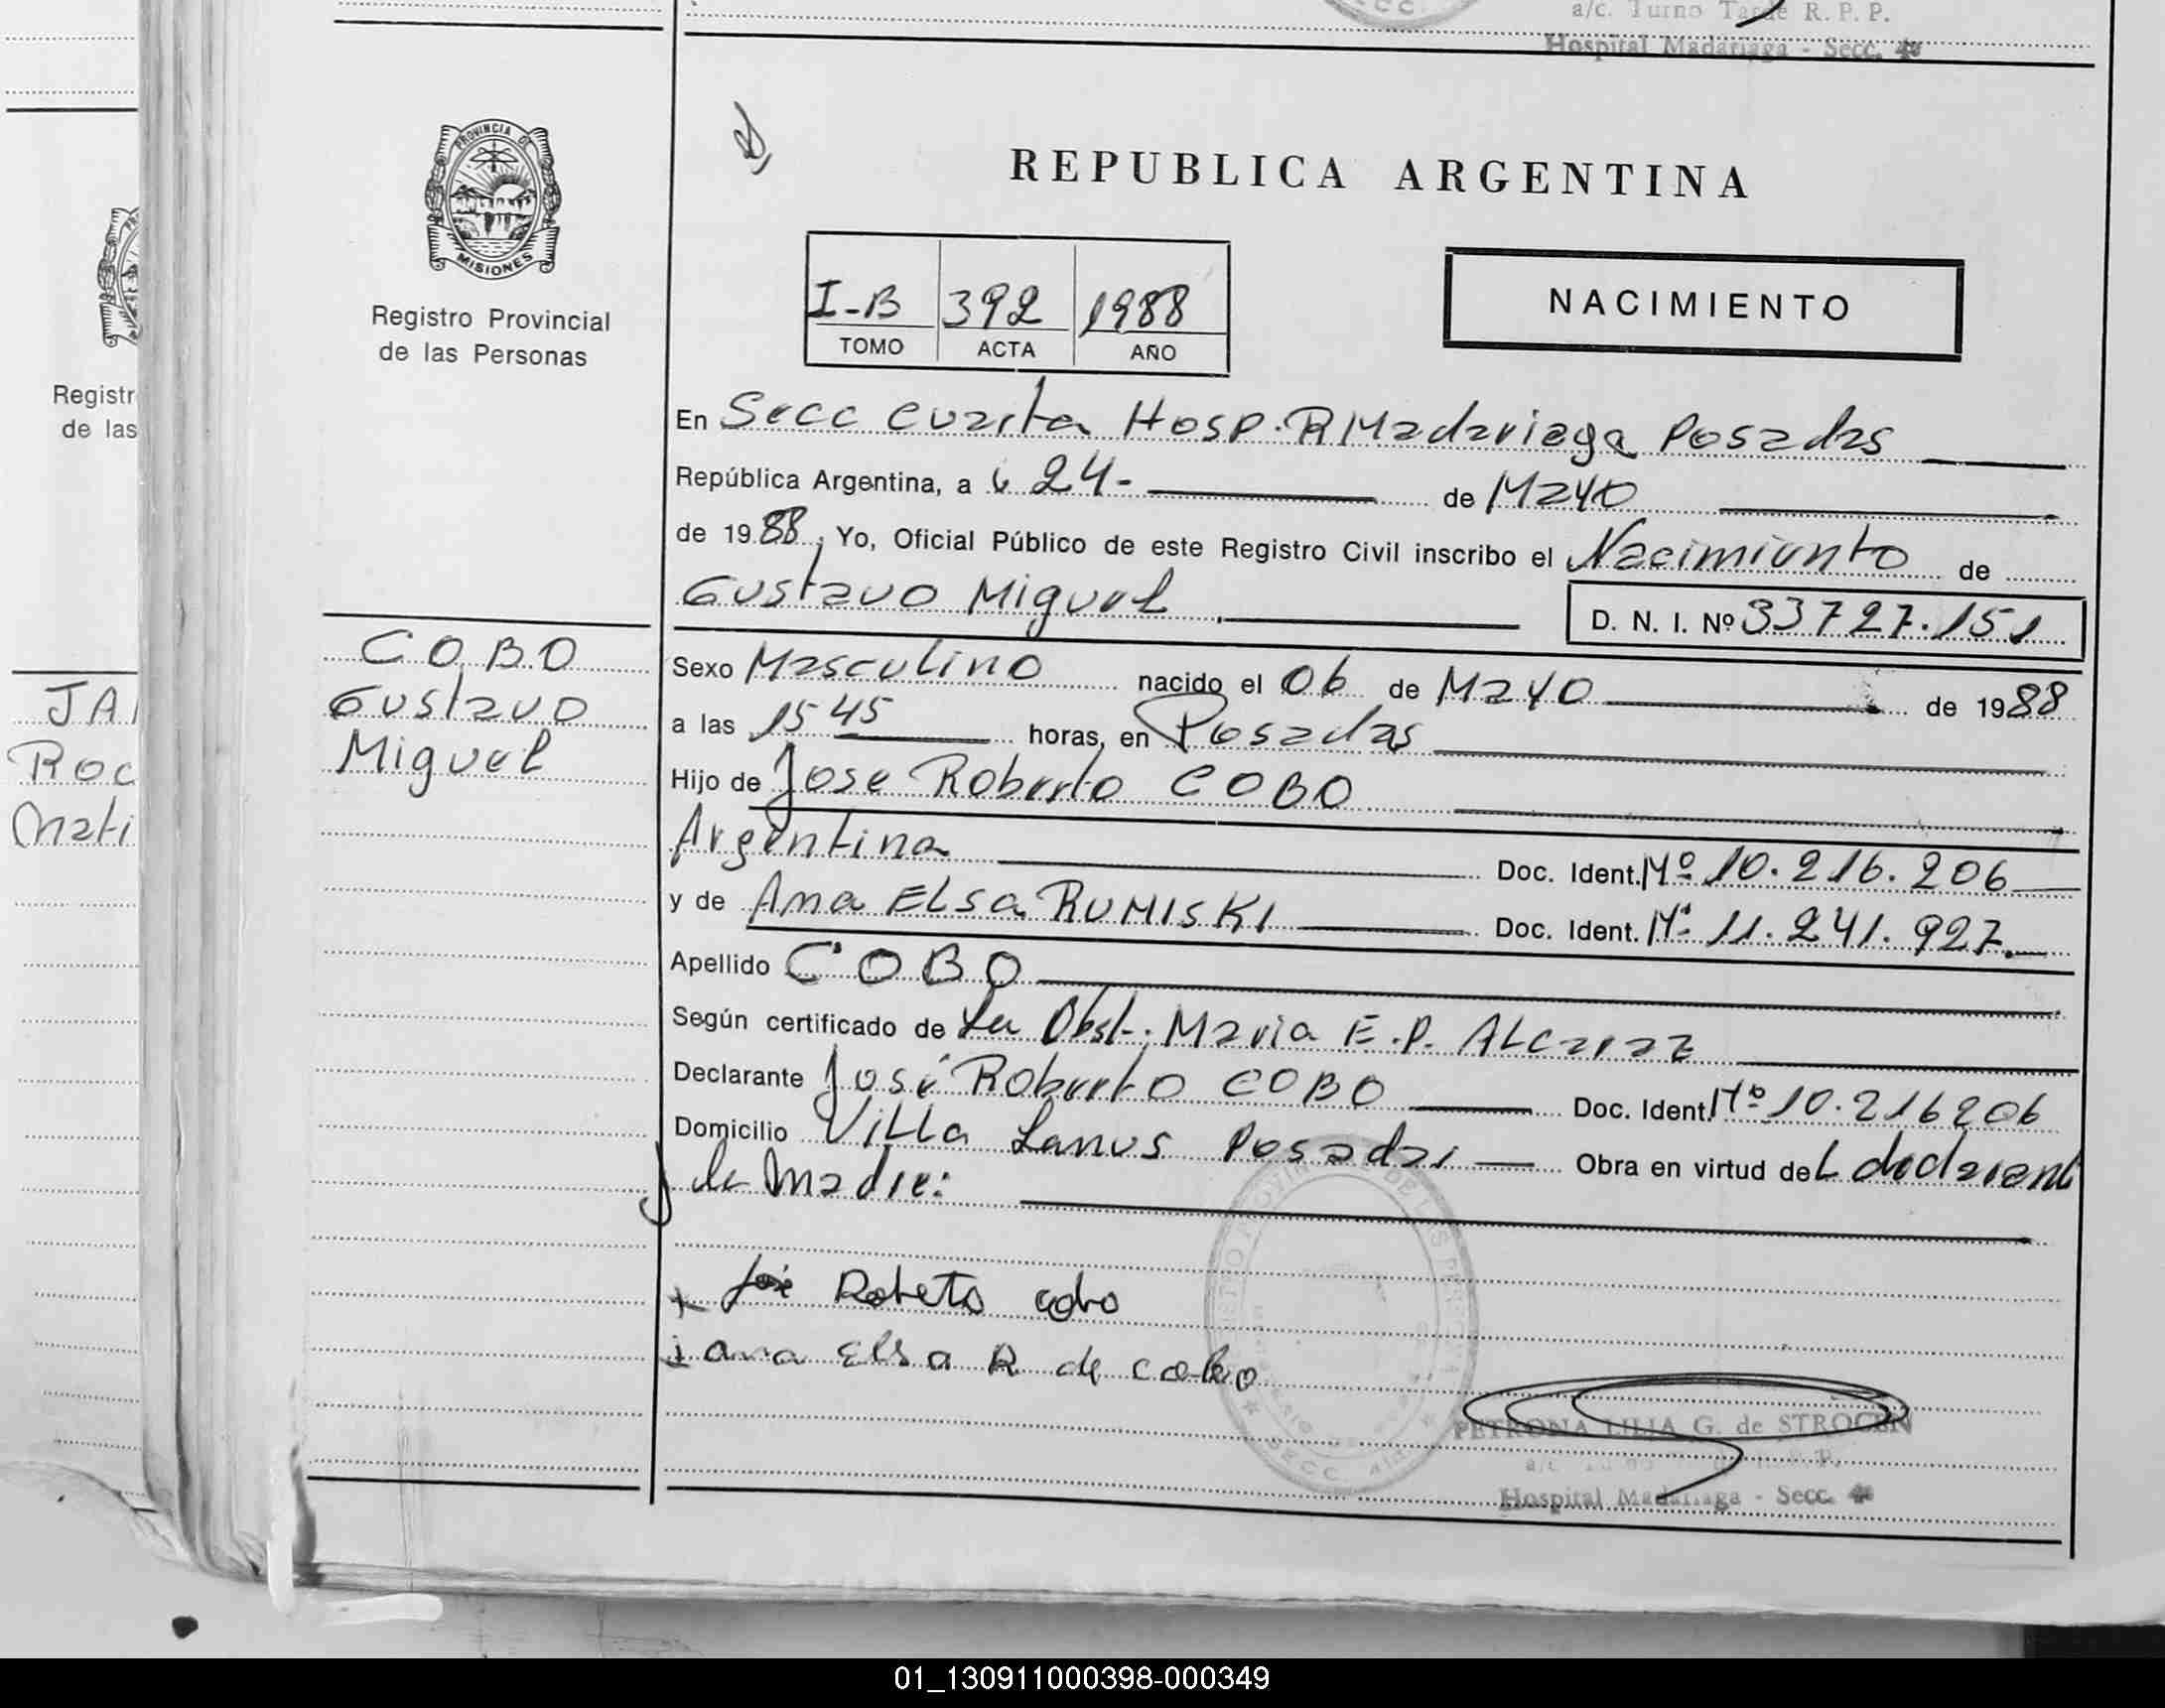 a/c. Turno Tarde R. P. P.
Hospital Madariaga - Secc. 4a
PROVINCIA DE
MISIONES
Registro Provincial
de las Personas
REPUBLICA ARGENTINA
I-B 392 1988
TOMO ACTA AÑO
NACIMIENTO
En Secc Cuarta Hosp. R Madariaga Posadas
República Argentina, a 24- de Mayo
de 1988, Yo, Oficial Público de este Registro Civil inscribo el Nacimiento de
Gustavo Miguel
D. N. I. Nº 33727.151
COBO
Gustavo
Miguel
Sexo Masculino nacido el 06 de Mayo de 1988
a las 15 45 horas, en Posadas
Hijo de Jose Roberto COBO
Argentina Doc. Ident. Nº 10.216.206
y de Ana Elsa RUMISKI Doc. Ident. Nº 11.241.927.
Apellido COBO
Según certificado de La Obst. Maria E.P. ALcaraz
Declarante José Roberto COBO Doc. Ident. Nº 10.216206
Domicilio Villa Lanus Posadas Obra en virtud del declarant
y la madre:
José Roberto cobo
ana Elsa R de cobo
PETRONA LILIA G. de STROCEN
Hospital Madariaga - Secc. 4a
Registr
de las
JA
Roc
Mati
01_130911000398-000349